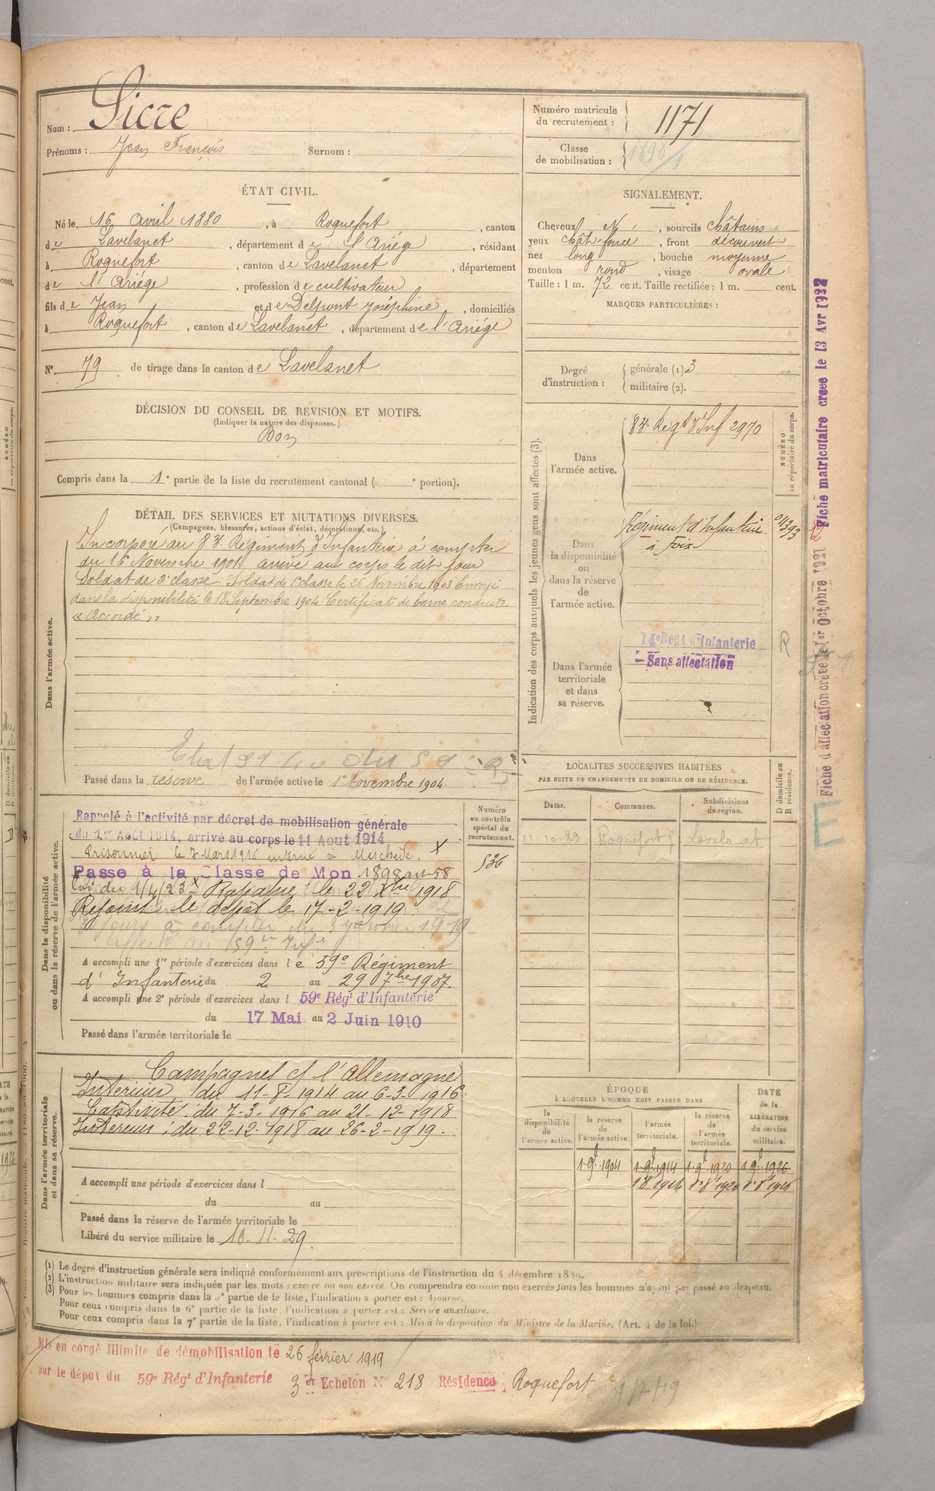 Nom : Sicre
Prénoms : Jean François Surnom :
ÉTAT CIVIL.
Né le 16 Avril 1880, à Roquefort, canton
de Lavelanet, département de l'Ariège, résidant
à Roquefort, canton de Lavelanet, département
de l'Ariège, profession de cultivateur
fils de Jean et de Delpont Joséphine, domiciliés
à Roquefort, canton de Lavelanet, département de l'Ariège
N° 79 de tirage dans le canton de Lavelanet
DÉCISION DU CONSEIL DE REVISION ET MOTIFS.
(Indiquer la nature des dispenses.)
Bon
Compris dans la 1e partie de la liste du recrutement cantonal ( e portion).
DÉTAIL DES SERVICES ET MUTATIONS DIVERSES.
(Campagnes, blessures, actions d'éclat, décorations, etc.)
Dans l'armée active.
Incorporé au Régiment d'Infanterie à compter
du 16 Novembre 1901 arrivé au corps le dit jour
Soldat de 2e classe. Soldat de 1e classe le 26 Novembre 1903 Envoyé
dans la disponibilité le 18 Septembre 1904 Certificat de bonne conduite
« Accordé »
Passé dans la réserve de l'armée active le 1er Novembre 1904
Dans la disponibilité
ou dans la réserve de l'armée active.
Rappelé à l'activité par décret de mobilisation générale
du 1er Août 1914, arrivé au corps le 11 Août 1914
Prisonnier le 7 Mars 1916 interné à Meschede. X
Passe à la Classe de Mon 1898 art 58
Loi du 1/4/23 X Rapatrié le 22 Xbre 1918
Rejoint le dépôt le 17-2-1919.
A accompli une 1re période d'exercices dans le 59e Régiment
d'Infanterie du 2 au 29 7bre 1907.
A accompli une 2e période d'exercices dans l 59e Régt d'Infanterie
du 17 Mai au 2 Juin 1910
Passé dans l'armée territoriale le
Numéro
au contrôle
spécial du
recrutement.
536
Dans l'armée territoriale
et dans sa réserve.
Campagnes c/ l'Allemagne
Intérieur du 11-8-1914 au 6-3-1916
Captivité : du 7-3-1916 au 21-12-1918
Intérieur : du 22-12-1918 au 26-2-1919.
A accompli une période d'exercices dans l
du au
Passé dans la réserve de l'armée territoriale le
Libéré du service militaire le 10-11-29.
Numéro matricule
du recrutement : 1171
Classe
de mobilisation :
SIGNALEMENT.
Cheveux N, sourcils châtains
yeux chât. foncé, front découvert
nez long, bouche moyenne
menton rond, visage ovale
Taille : 1 m. 72 cent. Taille rectifiée : 1 m. cent.
MARQUES PARTICULIÈRES :
Degré
d'instruction : générale (1) 3
militaire (2).
Indication des corps auxquels les jeunes gens sont affectés (3).
NUMÉRO
au répertoire du corps.
Dans
l'armée active.
Regt d'Inf 2970
Dans
la disponibilité
ou
dans la réserve
de
l'armée active.
Régiment d'Infanterie
à Foix
Dans l'armée
territoriale
et dans
sa réserve.
14e Regt d'Infanterie
Sans affectation
R
LOCALITÉS SUCCESSIVES HABITÉES
PAR SUITE DE CHANGEMENTS DE DOMICILE OU DE RÉSIDENCE.
Dates. Communes. Subdivisions de région. D domicile ou R résidence.
Roquefort Lavelanet
ÉPOQUE
À LAQUELLE L'HOMME DOIT PASSER DANS
la disponibilité de l'armée active. la réserve de l'armée active. l'armée territoriale. la réserve de l'armée territoriale.
DATE de la LIBÉRATION du service militaire.
1-9bre 1904
Fiche d'affectation créée le 1er Octobre 1921
Fiche matriculaire créée le 13 Avr 1922
E
(1) Le degré d'instruction générale sera indiqué conformément aux prescriptions de l'instruction du 4 décembre 1889.
(2) L'instruction militaire sera indiquée par les mots : exercé ou non exercé. On comprendra comme non exercés tous les hommes n'ayant pas passé au drapeau.
(3) Pour les hommes compris dans la 5e partie de la liste, l'indication à porter est : Ajourné.
Pour ceux compris dans la 6e partie de la liste, l'indication à porter est : Service auxiliaire.
Pour ceux compris dans la 7e partie de la liste, l'indication à porter est : Mis à la disposition du Ministre de la Marine. (Art. 4 de la loi.)
Mis en congé illimité de démobilisation le 26 février 1919
par le dépôt du 59e Régt d'Infanterie 3er Echelon N° 218 Résidence : Roquefort